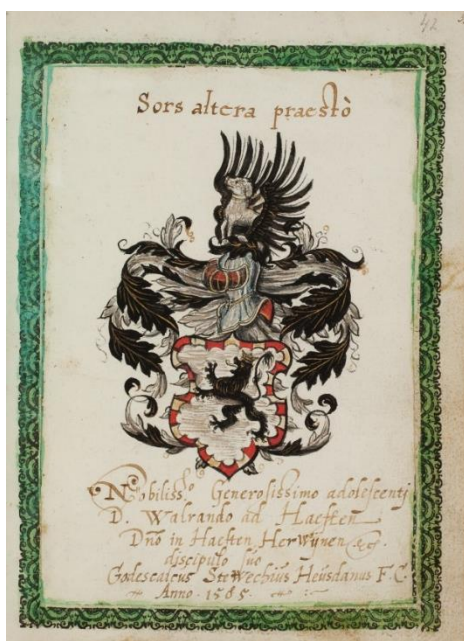 42
Sors altera praestò
Nobiliss.o Generosissimo adolescentj
D. Walrando ad Haeften
Dño in Haeften Herwijnen &c.
discipulo súo
Godescalcus Stewechius Heusdanus F.C.
Anno 1585